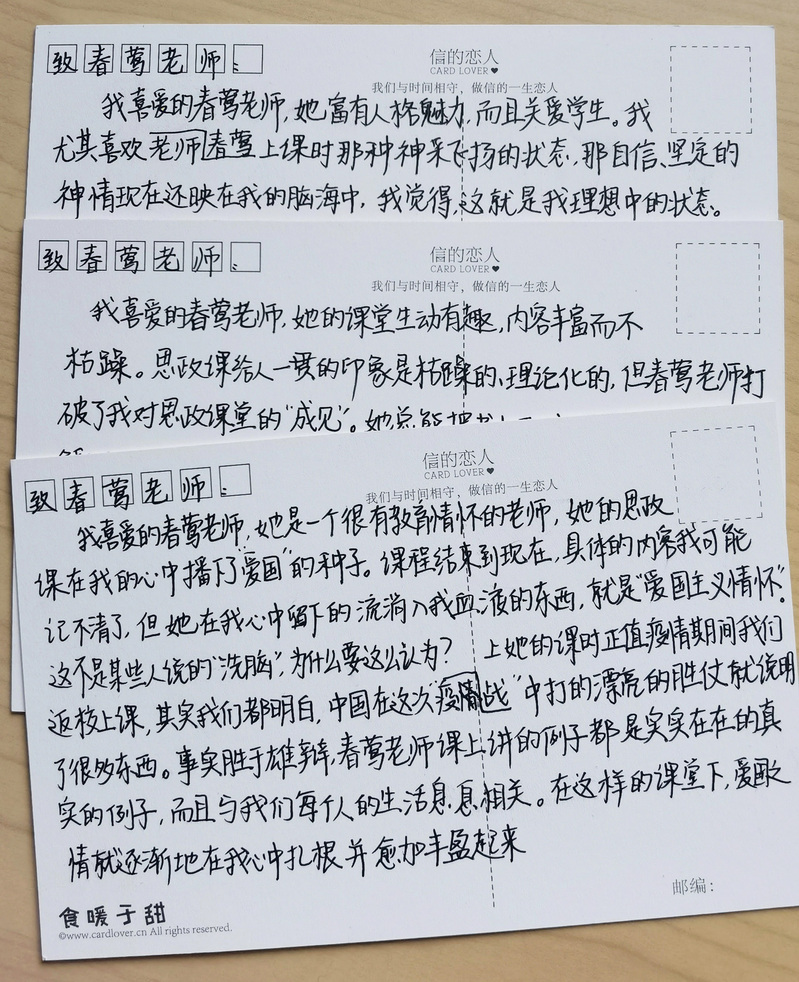 致春莺老师：
信的恋人
CARD LOVER♥
我们与时间相守，做信的一生恋人
我喜爱的春莺老师，她富有人格魅力，而且关爱学生。我
尤其喜欢老师春莺上课时那种神采飞扬的状态，那自信、坚定的
神情现在还映在我的脑海中，我觉得，这就是我理想中的状态。
致春莺老师：
信的恋人
CARD LOVER♥
我们与时间相守，做信的一生恋人
我喜爱的春莺老师，她的课堂生动有趣，内容丰富而不
枯躁。思政课给人一贯的印象是枯躁的、理论化的，但春莺老师打
破了我对思政课堂的“成见”。她总能把
致春莺老师：
信的恋人
CARD LOVER♥
我们与时间相守，做信的一生恋人
我喜爱的春莺老师，她是一个很有教育情怀的老师，她的思政
课在我的心中播下了“爱国”的种子。课程结束到现在，具体的内容我可能
记不清了，但她在我心中留下的流淌入我血液的东西，就是“爱国主义情怀”。
这不是某些人说的“洗脑”，为什么要这么认为？上她的课时正值疫情期间我们
返校上课，其实我们都明白，中国在这次“疫情战”中打的漂亮的胜仗就说明
了很多东西。事实胜于雄辩，春莺老师课上讲的例子都是实实在在的真
实的例子，而且与我们每个人的生活息息相关。在这样的课堂下，爱国之
情就逐渐地在我心中扎根并愈加丰盈起来
邮编：
食暖于甜
©www.cardlover.cn All rights reserved.